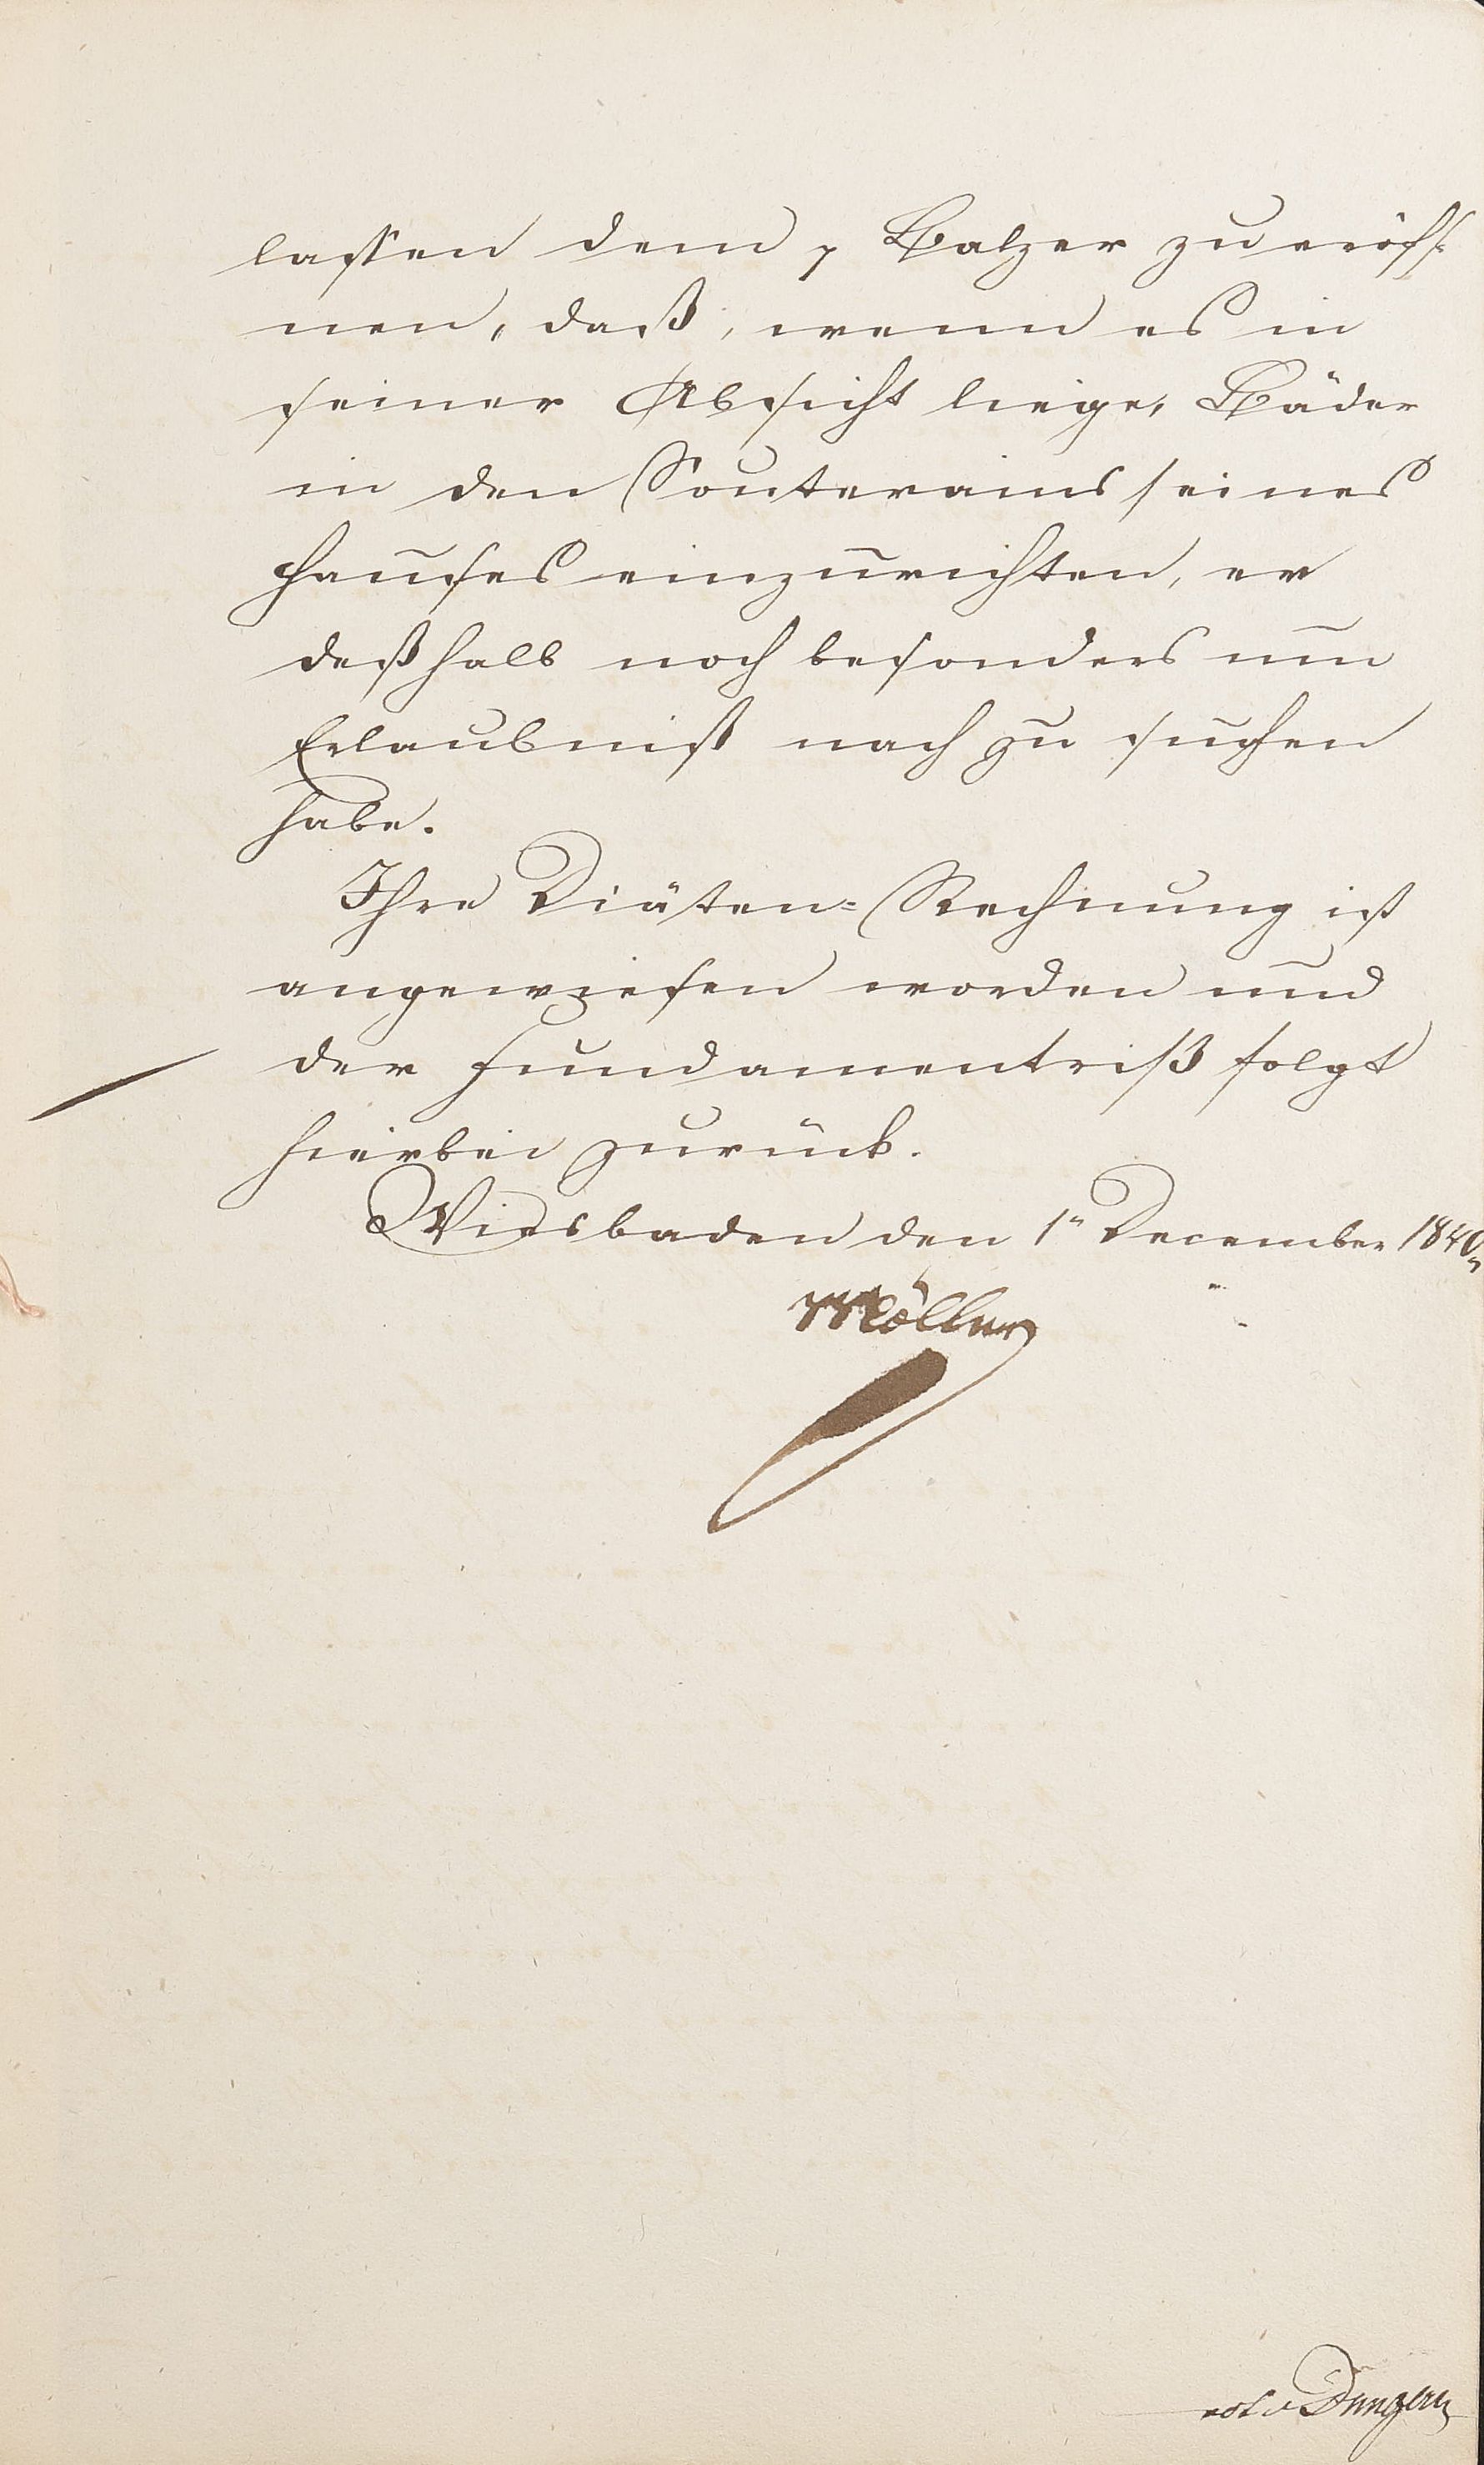 lassen dem p Balzer zu eröff-
nen, daß, wenn es in
seiner Absicht liege, Bäder
in den Souterains seines
Hauses einzurichten, er
deßhalb noch besonders um
Erlaubniß nach zu suchen
habe.
Ihre Diäten-Rechnung ist
angewiesen worden und
der Fundamentriß folgt
hierbei zurück.
Wiesbaden den 1n December 1840.
Möller
vdt v Dungern